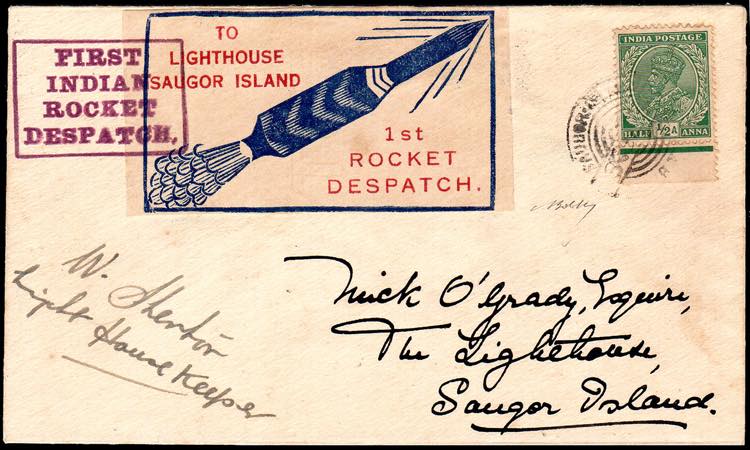 FIRST
INDIAN
ROCKET
DESPATCH.
TO
LIGHTHOUSE
SAUGOR ISLAND
1st
ROCKET
DESPATCH.
INDIA POSTAGE
HALF ½A ANNA
W. Shenton
Light House Keeper
Mick O'Grady, Esquire,
The Lighthouse,
Saugor Island.